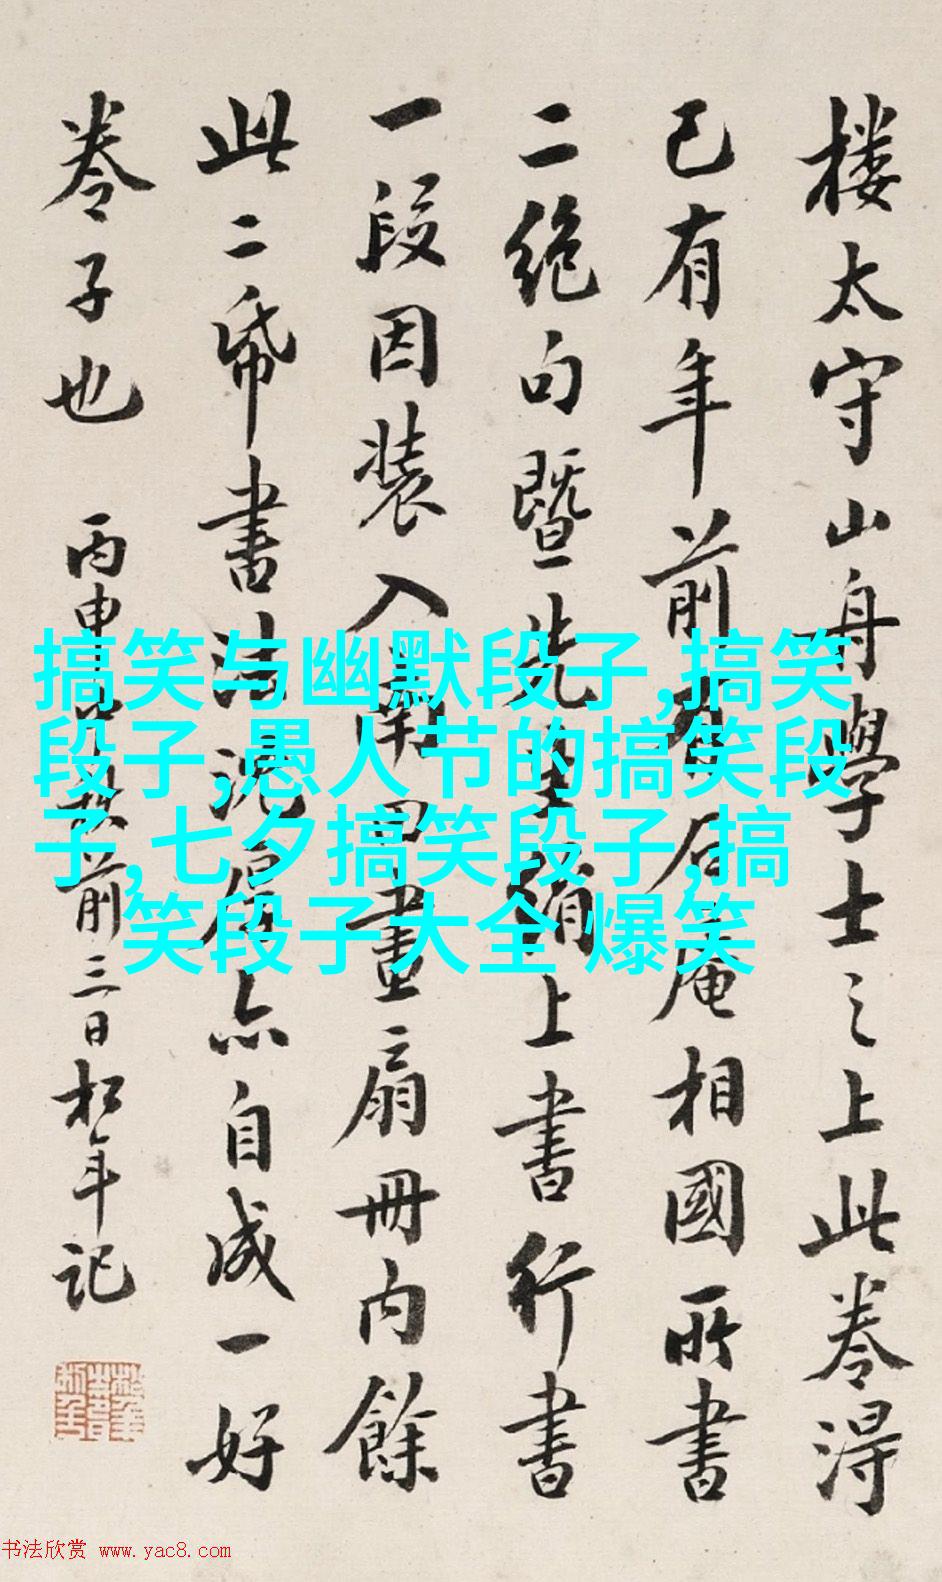 楼太守山舟學士之上此卷得
已有年前石庵相國所書
二绝句暨先上書行書
一段因装入畫扇冊内餘
此二帋書法亦自成一好
卷子也 丙申前三日松年记
搞笑与幽默段子,搞笑
段子,愚人节的搞笑段
子,七夕搞笑段子,搞
笑段子大全 爆笑
书法欣赏 www.yac8.com